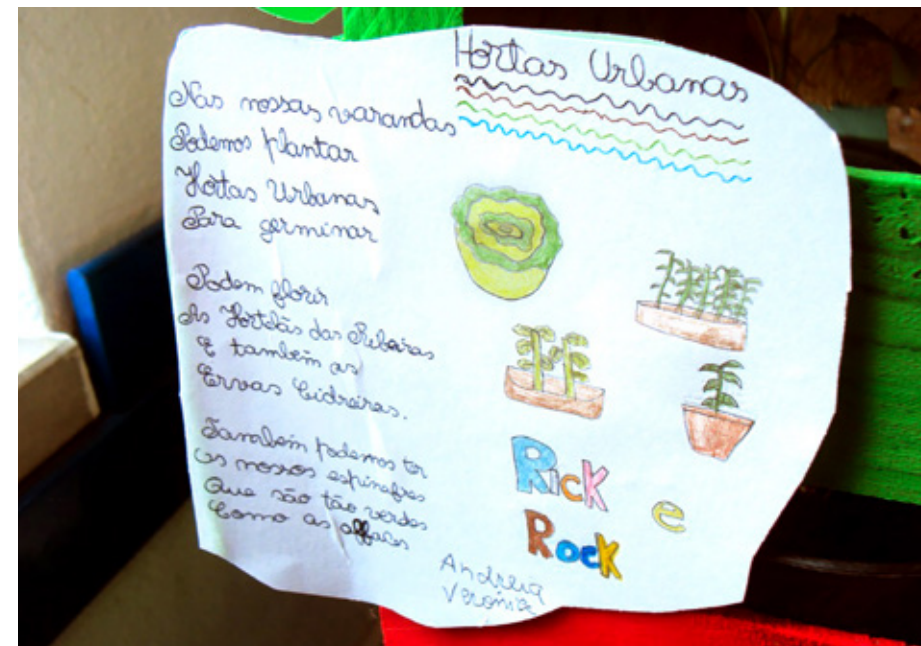 Hortas Urbanas
Nas nossas varandas
Podemos plantar
Hortas Urbanas
Para germinar
Podem florir
As Hortelãs das Ribeiras
E também as
Ervas Cidreiras.
Também podemos ter
os nossos espinafres
Que são tão verdes
Como as alfaces
Rick e
Rock
Andreia
Verónica